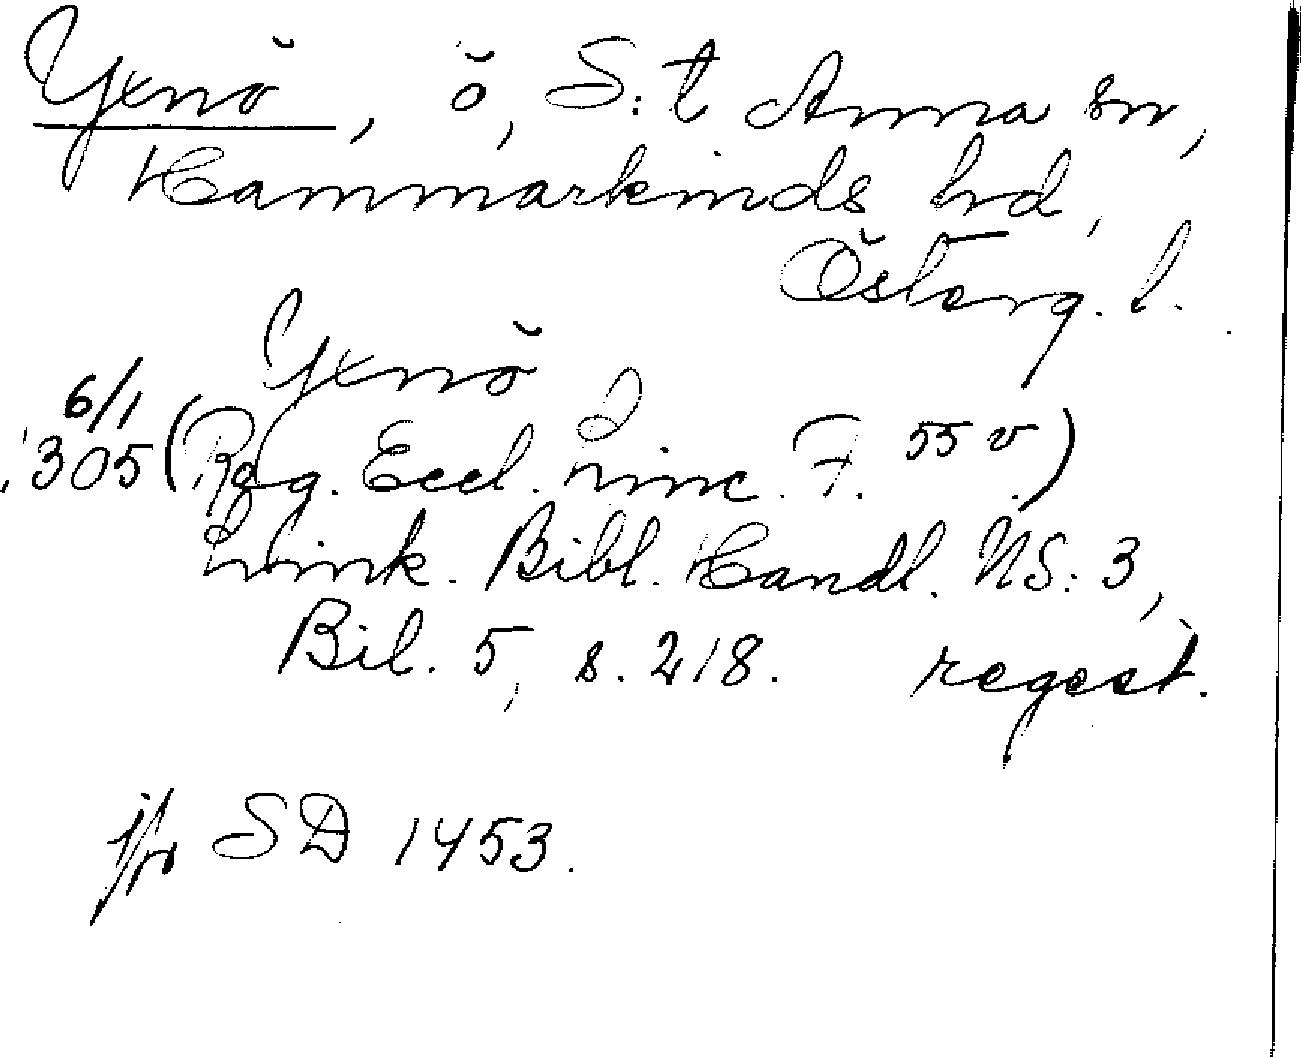 Yxnö, ö, S:t Anna sn,
Hammarkinds hd,
Österg. l.
Yxnö
6/1
1305 (Reg. Eccl. Linc. F. 55 v.)
Link. Bibl. Handl. NS: 3,
Bil. 5, s. 218. regest.
jfr SD 1453.